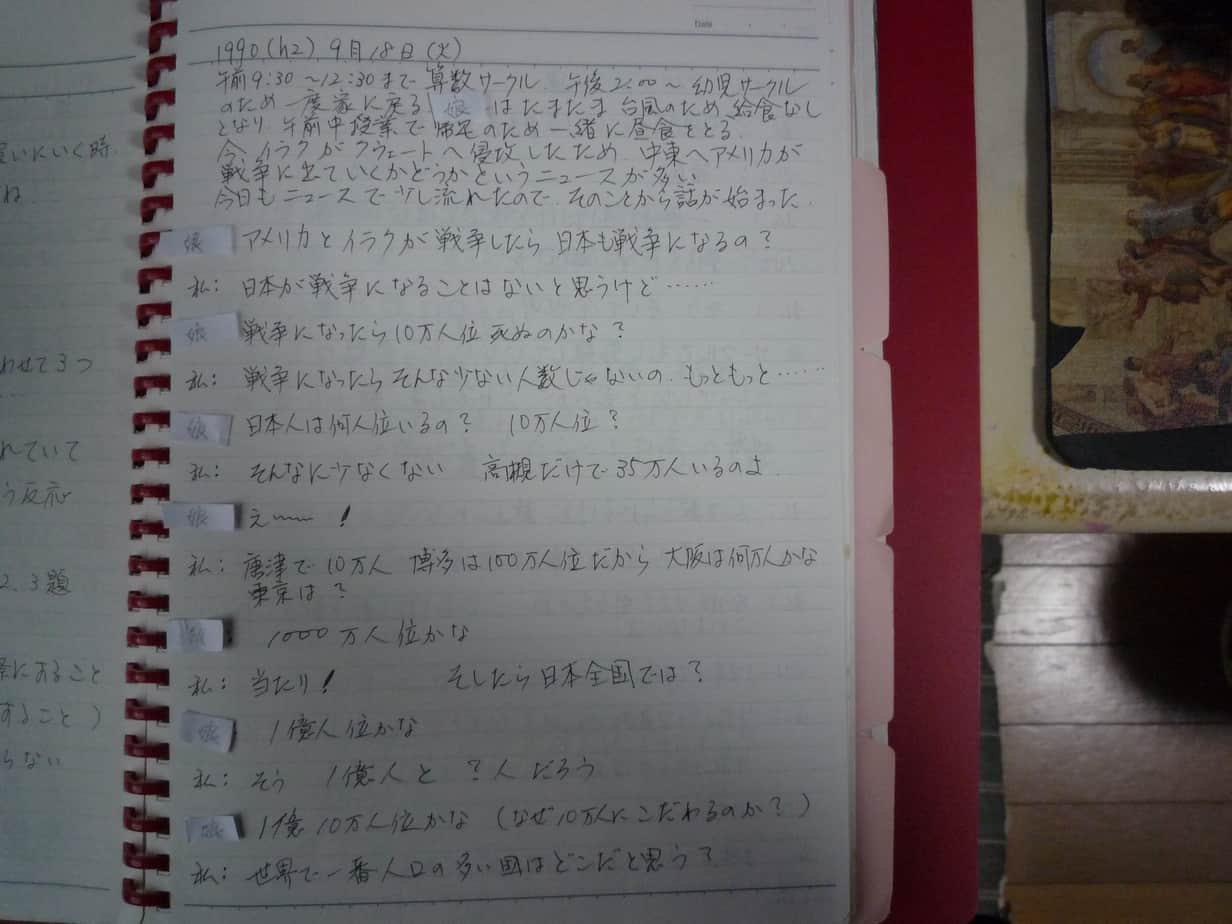 Date
1990(h2) 9月18日(火)
午前9:30～12:30まで 算数サークル 午後2:00～幼児サークル
のため 一度家に戻る 娘 はたまたま 台風のため 給食なし
となり 午前中授業で 帰宅のため 一緒に昼食をとる.
今 イラクが クウェートへ侵攻したため、中東へアメリカが
戦争に出ていくかどうかというニュースが多い
今日もニュースで少し流れたので、そのことから話が始まった.
娘 アメリカとイラクが戦争したら 日本も戦争になるの?
私: 日本が戦争になることはないと思うけど……
娘 戦争になったら10万人位死ぬのかな?
私: 戦争になったらそんな少ない人数じゃないの. もっともっと……
娘 日本人は何人位いるの? 10万人位?
私: そんなに少なくない 高槻だけで35万人いるのよ.
娘 え〜〜!
私: 唐津で10万人 博多は100万人位だから 大阪は何万人かな
東京は?
娘 1000万人位かな
私: 当たり! そしたら日本全国では?
娘 1億人位かな
私: そう 1億人と ?人だろう
娘 1億10万人位かな (なぜ10万人にこだわるのか?)
私: 世界で一番人口の多い国はどこだと思う?
買いにいく時.
ね
わせて3つ
れていて
う反応
2、3題
にすること
すること)
らない